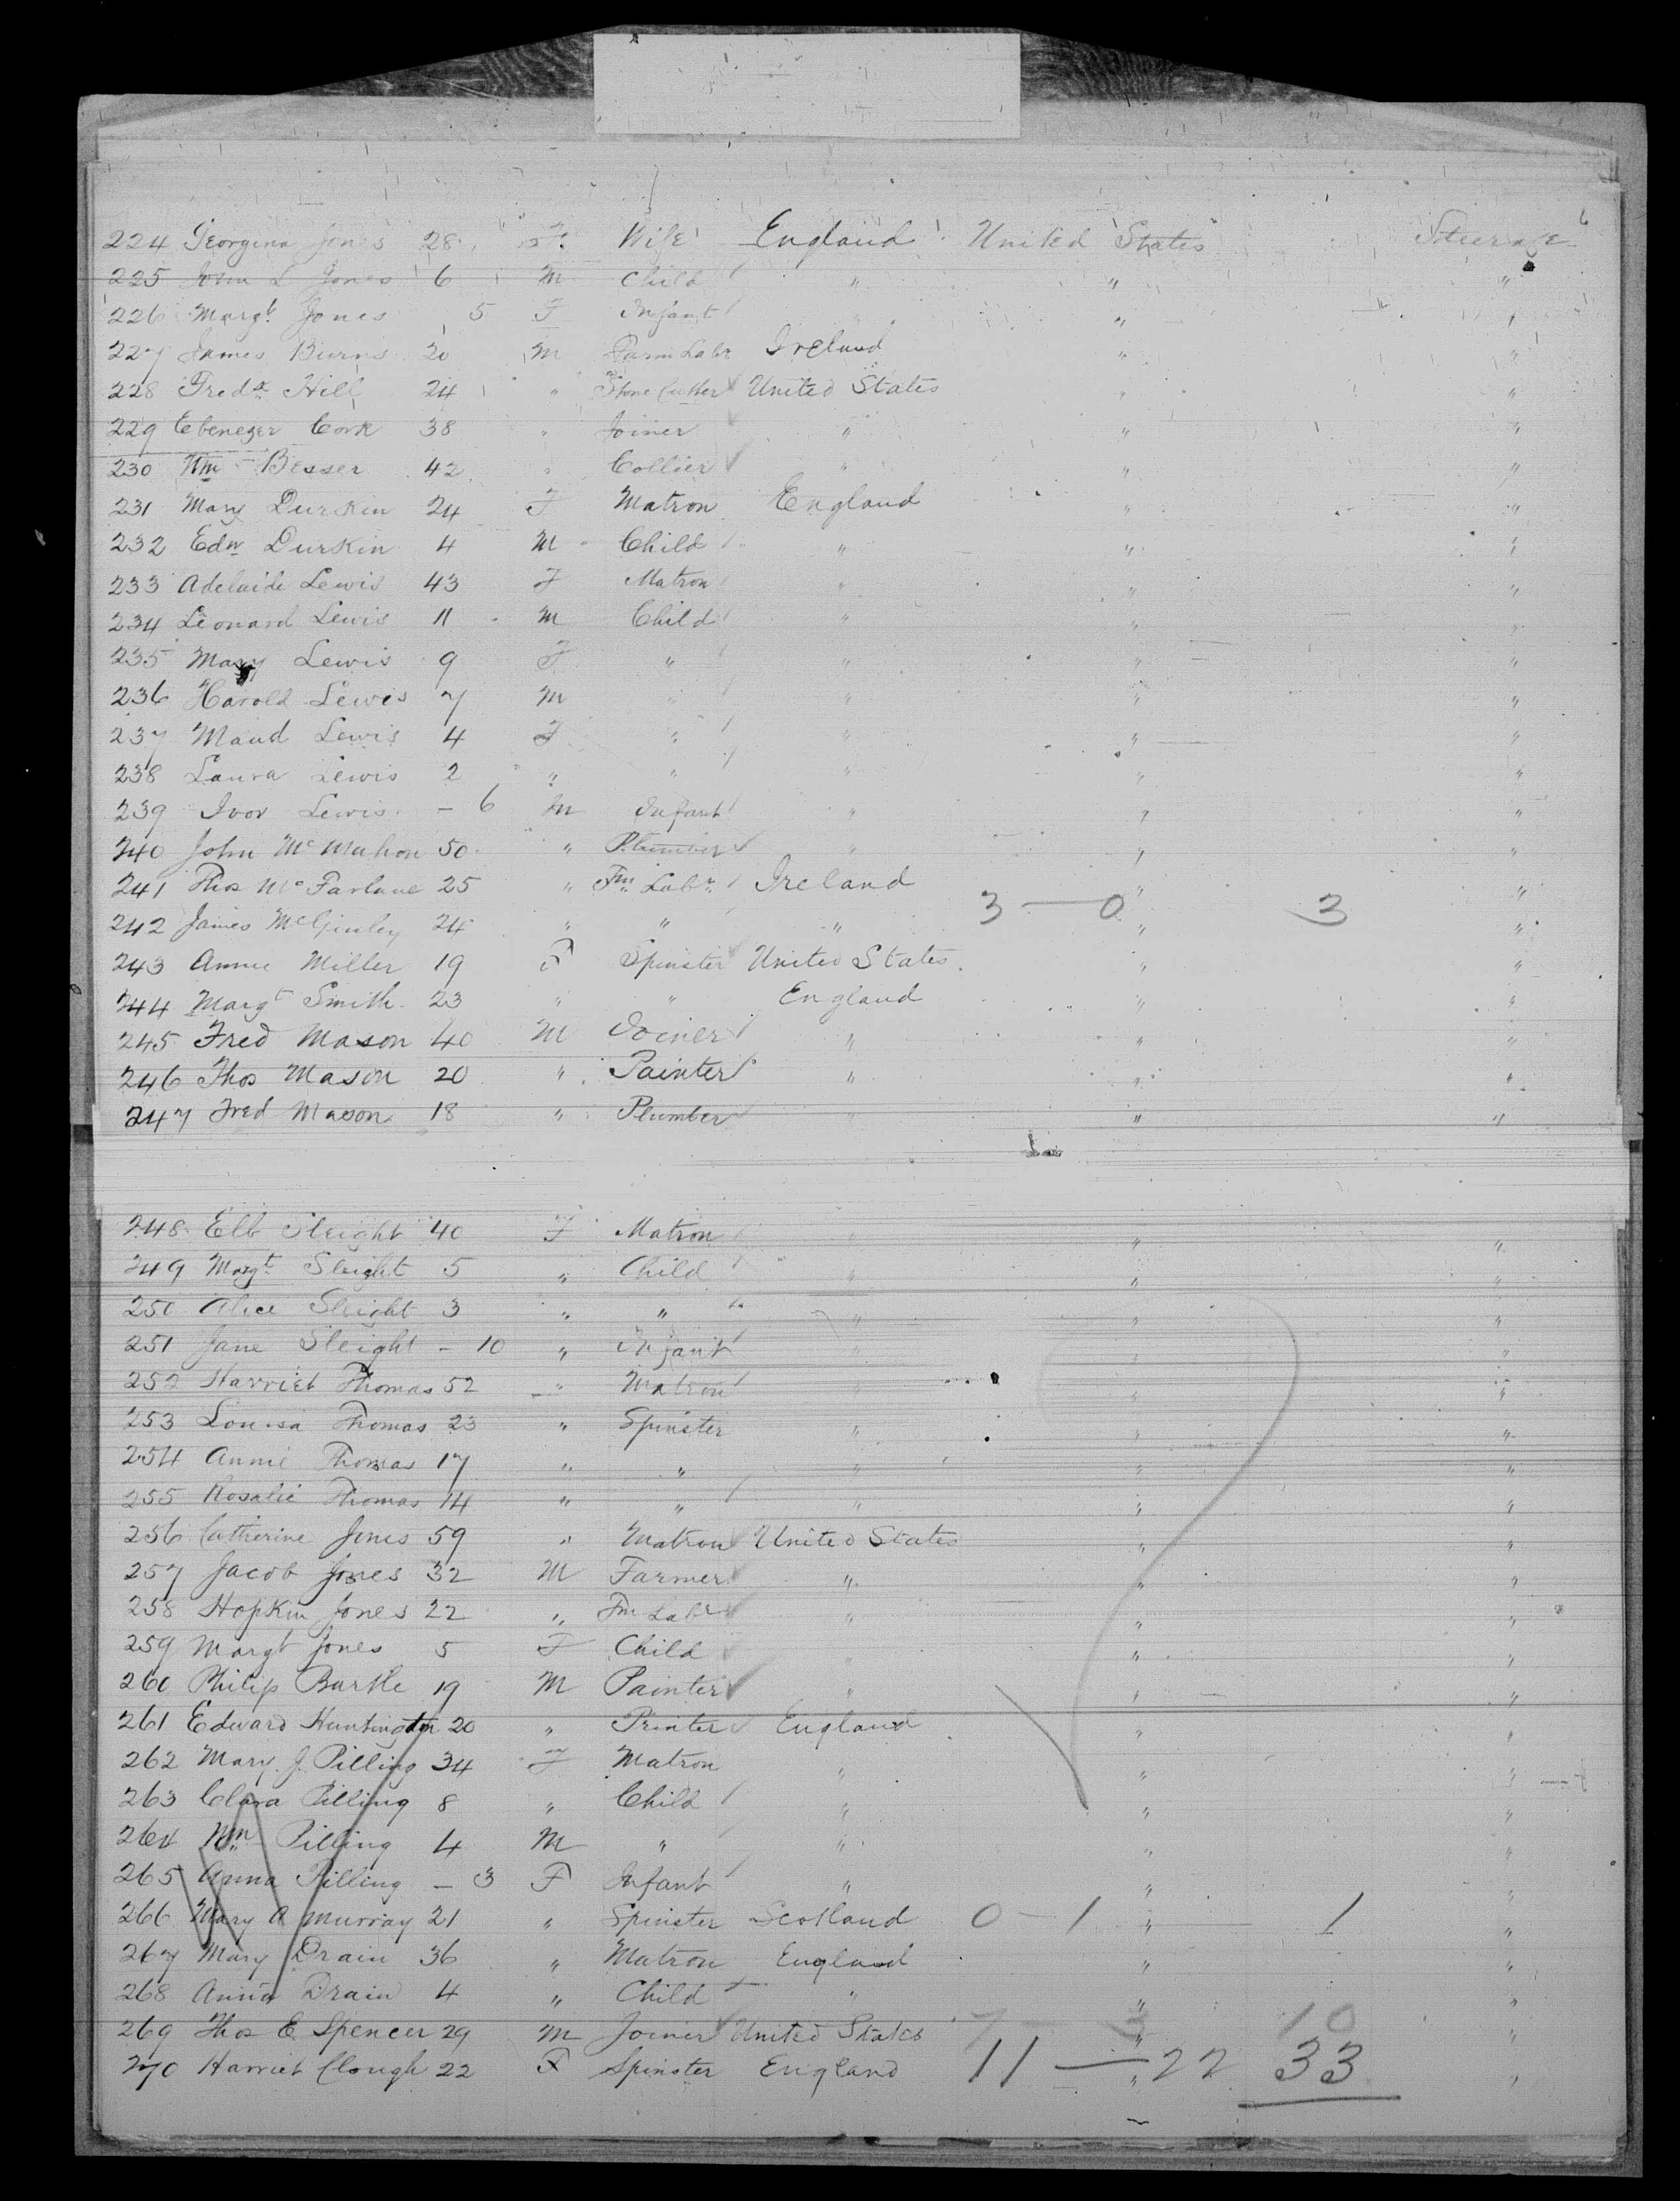 6
224 Georgina Jones 28 F Wife England United States Steerage
225 John L Jones 6 M Child " " "
226 Margt Jones 5 F Infant " " "
227 James Burns 20 M Farm Labr Ireland " "
228 Fredk Hill 24 " Stone Cutter United States " "
229 Ebenezer Cork 38 " Joiner " " "
230 Wm Besser 42 " Collier " " "
231 Mary Durkin 24 F Matron England " "
232 Edw Durkin 4 M Child " " "
233 Adelaide Lewis 43 F Matron " " "
234 Leonard Lewis 11 M Child " " "
235 Mary Lewis 9 F " " " "
236 Harold Lewis 7 M " " " "
237 Maud Lewis 4 F " " " "
238 Laura Lewis 2 " " " " "
239 Ivor Lewis - 6 M Infant " " "
240 John McMahon 50 " Plumber " " "
241 Thos McFarlane 25 " Fm Labr Ireland " "
242 James McGinley 24 " " " 3 — 0 " 3 "
243 Annie Miller 19 F Spinster United States " "
244 Margt Smith 23 " " England " "
245 Fred Mason 40 M Joiner " " "
246 Thos Mason 20 " Painter " " "
247 Fred Mason 18 " Plumber " "
248 Elb Sleight 40 F Matron " " "
249 Margt Sleight 5 " Child " " "
250 Alice Sleight 3 " " " " "
251 Jane Sleight - 10 " Infant " " "
252 Harriet Thomas 52 " Matron " " "
253 Louisa Thomas 23 " Spinster " " "
254 Annie Thomas 17 " " " " "
255 Rosalie Thomas 14 " " " " "
256 Catherine Jones 59 " Matron United States " "
257 Jacob Jones 32 M Farmer " " "
258 Hopkin Jones 22 " Fm Labr " " "
259 Margt Jones 5 F Child " " "
260 Philip Bartle 19 M Painter " " "
261 Edward Huntington 20 " Printer England " "
262 Mary J. Pilling 34 F Matron " " "
263 Clara Pilling 8 " Child " " "
264 Wm Pilling 4 M " " " "
265 Anna Pilling - 3 F Infant " " "
266 Mary A Murray 21 " Spinster Scotland 0 - 1 " 1 "
267 Mary Drain 36 " Matron England " "
268 Anna Drain 4 " Child " " "
269 Thos E Spencer 29 M Joiner United States 7 3 " 10 "
270 Harriet Clough 22 F Spinster England 11 — 22 " 33 "